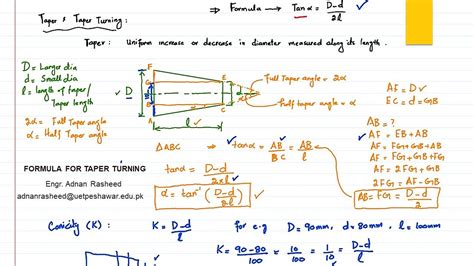 ⇒ Formula → Tan α = D-d / 2l ✓
Taper & Taper Turning:
Taper: Uniform increase or decrease in diameter measured along its length.
D = Larger dia
d = Small dia
l = length of taper/
Taper length
2α = Full Taper angle
α = Half Taper angle
F
E
G
D
d
B
C
A
l ✓
Full Taper angle = 2α
Half taper angle = α
AF = D ✓
EC = d = GB
AB = ?
AF = EB + AB
AF = FG + GB + AB
AF = FG + d + AB
D = FG + d + AB
AB = FG = D-d / 2
ΔABC → tan α = AB / BC = AB / l
tan α = D-d / 2×l ✓
α = tan⁻¹ (D-d / 2l)
FORMULA FOR TAPER TURNING
Engr. Adnan Rasheed
adnanrasheed@uetpeshawar.edu.pk
Conicity (K): K = D-d / l for e.g D = 90mm, d = 80mm, l = 100mm
K = 90-80 / 100 = 10 / 100 = 1 / 10 ✓ K = D-d / l